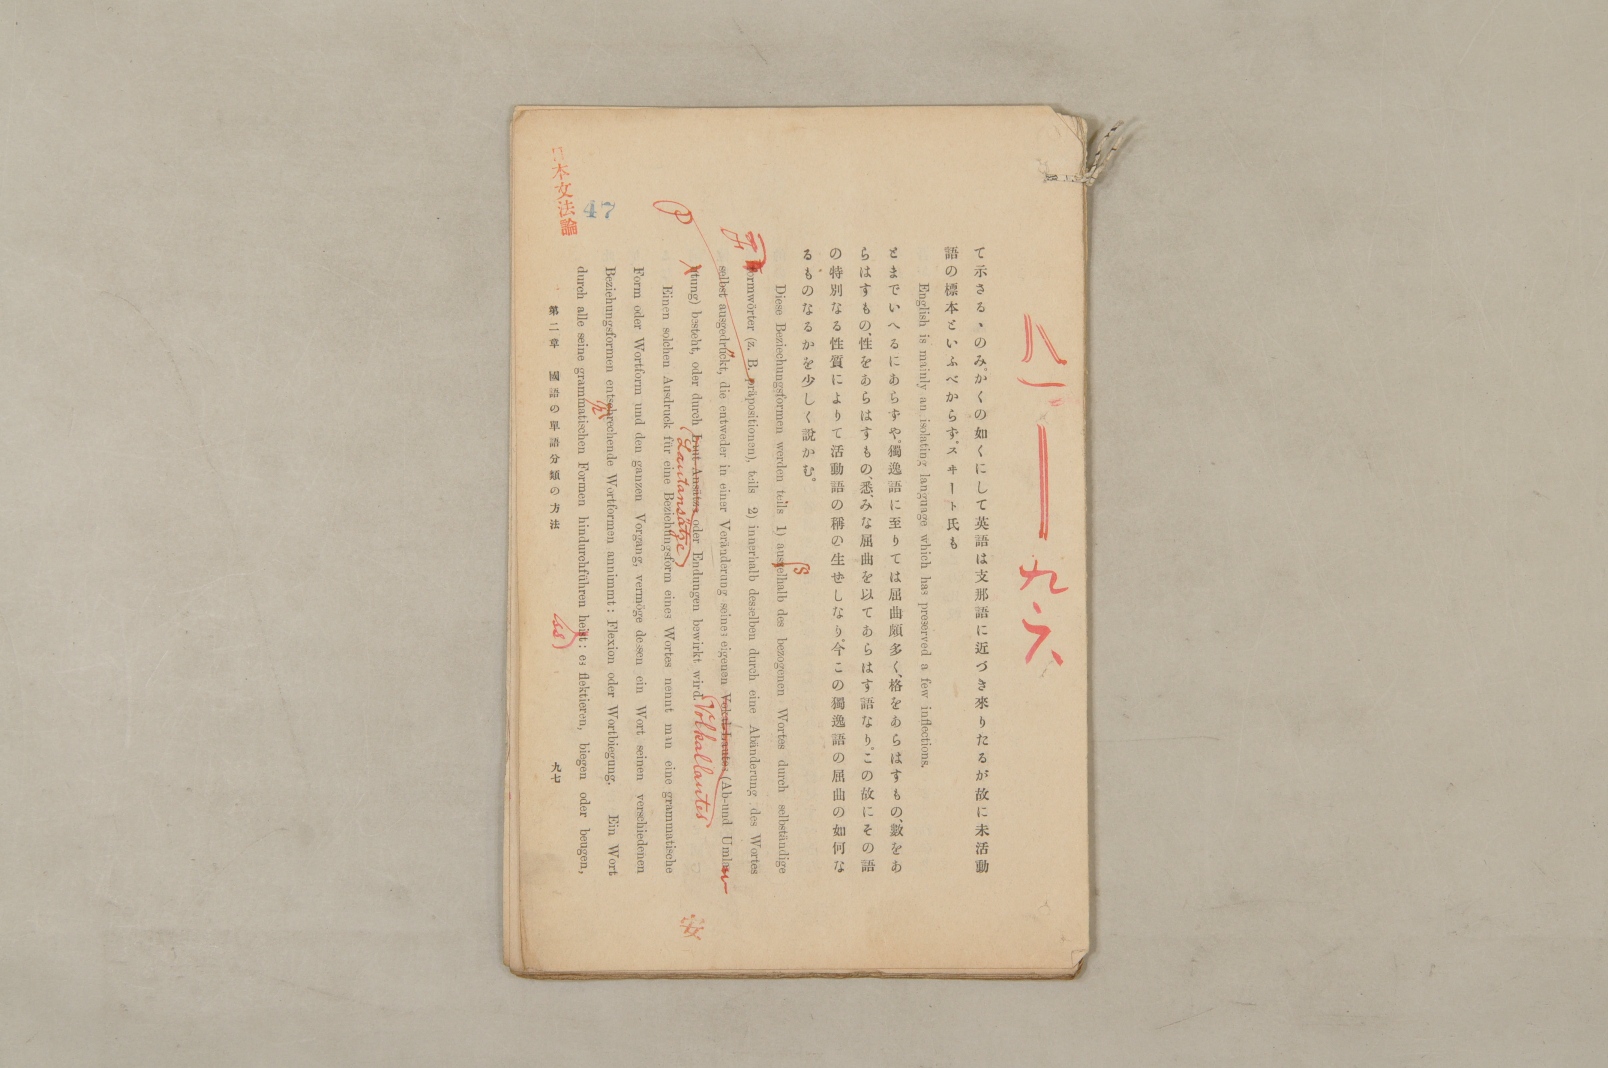 八一——九六
て示さるゝのみ。かくの如くにして英語は支那語に近づき來りたるが故に未活動
語の標本といふべからず。スヰート氏も
English is mainly an isolating language which has preserved a few inflections.
とまでいへるにあらずや。獨逸語に至りては屈曲頗多く、格をあらはすもの、數をあ
らはすもの、性をあらはすもの、悉みな屈曲を以てあらはす語なり。この故にその語
の特別なる性質によりて活動語の稱の生ぜしなり。今この獨逸語の屈曲の如何な
るものなるかを少しく說かむ。
Diese Beziechungsformen werden teils 1) ausselhalb des bezogenen Wortes durch selbständige
ß
Formwörter (z. B. präpositionen), teils 2) innerhalb desselben durch eine Abänderung des Wortes
F
P
selbst ausgedrückt, die entweder in einer Veränderung seines eigenen Vokal-Lautes (Ab-und Umlau
Volkallautes
tung) besteht, oder durch Laut-Ansätze oder Endungen bewirkt wird.
(Lautansätze)
Einen solchen Ausdruck für eine Beziehungsform eines Wortes nennt man eine grammatische
Form oder Wortform und den ganzen Vorgang, vermöge dessen ein Wort seinen verschiedenen
Beziehungsformen entsprechende Wortformen annimmt: Flexion oder Wortbiegung. Ein Wort
durch alle seine grammatischen Formen hindurchführen heist: es flektieren, biegen oder beugen,
ss
第二章 國語の單語分類の方法
九七
日本文法論
47
安